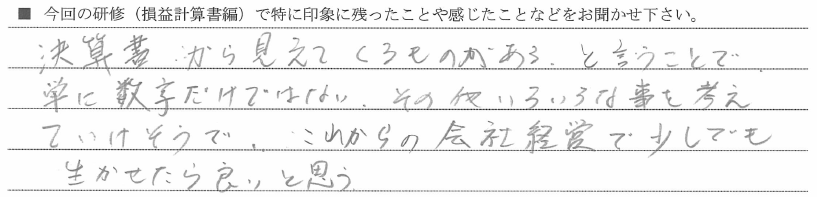 ■ 今回の研修（損益計算書編）で特に印象に残ったことや感じたことなどをお聞かせ下さい。
決算書から見えてくるものがある、と言うことで、
単に数字だけではない、その他いろいろな事を考え
ていけそうで、これからの会社経営で少しでも
生かせたら良いと思う